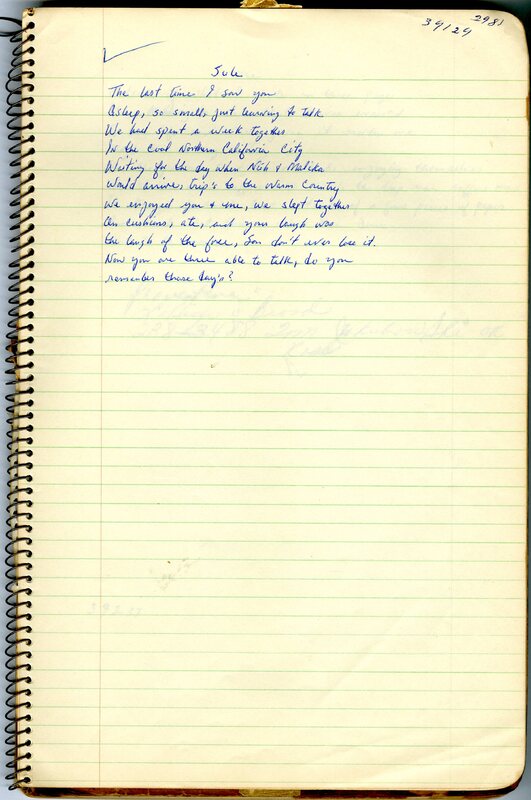 39129 2981
Sule
The last time I saw you
Asleep, so small, just learning to talk
We had spent a week together
In the Cool Northern California City
Waiting for the day when Nub & Malika
Would arrive, trip's to the warm Country
We enjoyed you & me, we slept together
On cushions, ate, and your laugh was
the laugh of the free, Son don't ever lose it.
Now you are three able to talk, do you
remember those day's?